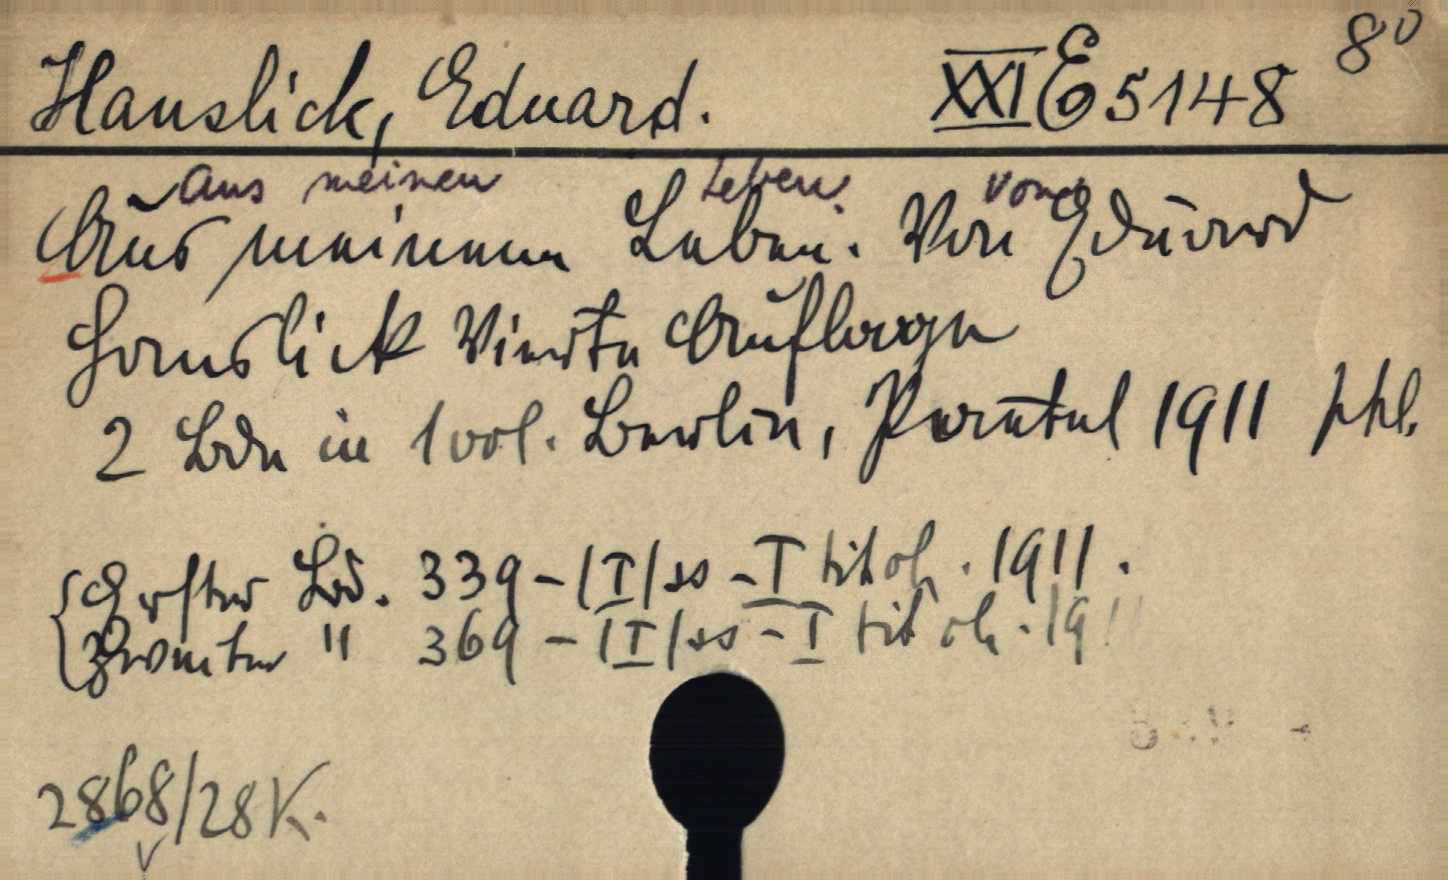 Hanslick, Eduard. XXI E 5148 8°
Aus meinen Leben. von
Aus meinem Leben. Von Eduard
Hanslick Vierte Auflage
2 Bde in 1 vol. Berlin, Paetel 1911
{ Erster Bd. 339 - |I| ss - I tit ok. 1911.
{ Zweiter " 369 - |I| ss - I tit ok. 1911
2868/28 K.